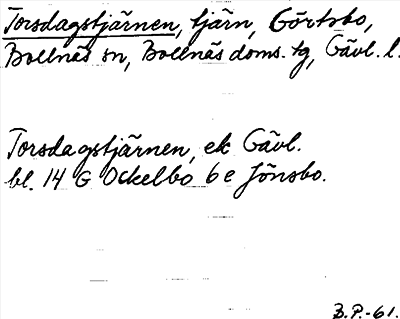 Torsdagstjärnen, tjärn, Görtsbo,
Bollnäs sn, Bollnäs doms. tg, Gävl. l.
Torsdagstjärnen, ek Gävl.
bl. 14 G Ockelbo 6 e Jönsbo.
B.P.-61.